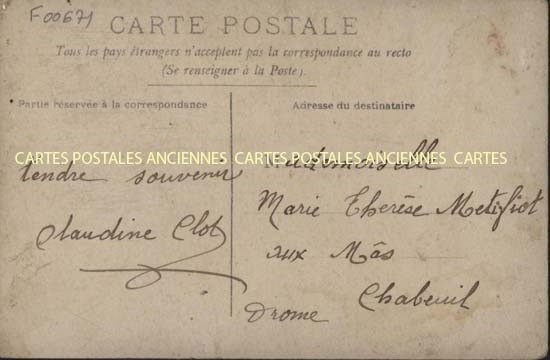 F00671
CARTE POSTALE
Tous les pays étrangers n'acceptent pas la correspondance au recto
(Se renseigner à la Poste).
Partie réservée à la correspondance
Adresse du destinataire
CARTES POSTALES ANCIENNES CARTES POSTALES ANCIENNES CARTES
tendre souvenir
Claudine Clot
Mademoiselle
Marie Thérèse Metifiot
aux Mâs
Chabeuil
Drome